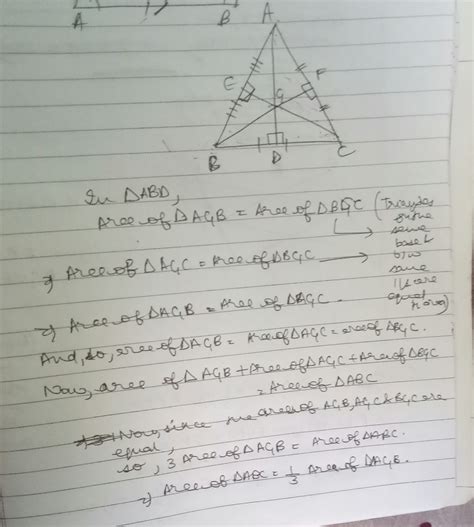 A B
A
E F
G
B D C
In ΔABD,
Area of ΔAGB = Area of ΔBGC (Triangles
on the
same
base &
b/w
same
||s are
equal
⇒ Area of ΔAGC = Area of ΔBGC
⇒ Area of ΔAGB = Area of ΔAGC.
And, so, area of ΔAGB = Area of ΔAGC = area of ΔBGC.
Now, area of ΔAGB + Area of ΔAGC + Area of ΔBGC
= Area of ΔABC
Now, since the areas of AGB, AGC & BGC are
equal,
so, 3 Area of ΔAGB = Area of ΔABC.
⇒ Area of = 1/3 Area of